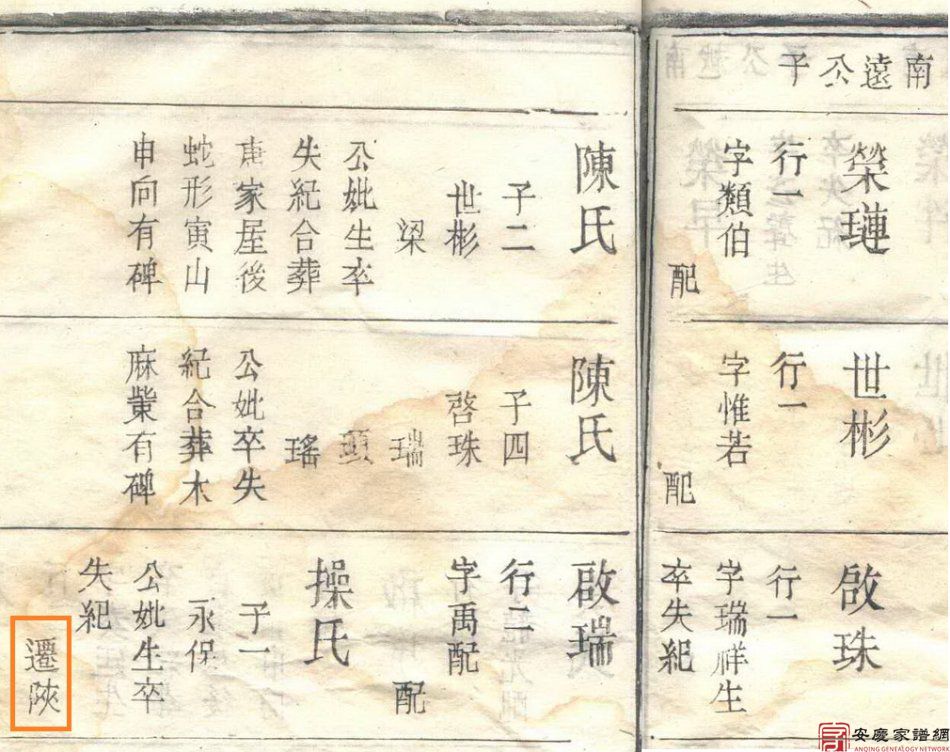 南遠公子
榮璉
行一
字類伯
配
陳氏
子二
世彬
梁
公妣生卒
失紀合葬
家屋後
蛇形寅山
申向有碑
世彬
行一
字惟若
配
陳氏
子四
啓珠
瑞
瑤
公妣卒失
紀合葬木
麻有碑
啟珠
行一
字瑞祥生
卒失紀
啟瑞
行二
字禹配
配
操氏
子一
永保
公妣生卒
失紀
遷陝
安慶家譜網
ANQING GENEALOGY NETWORK